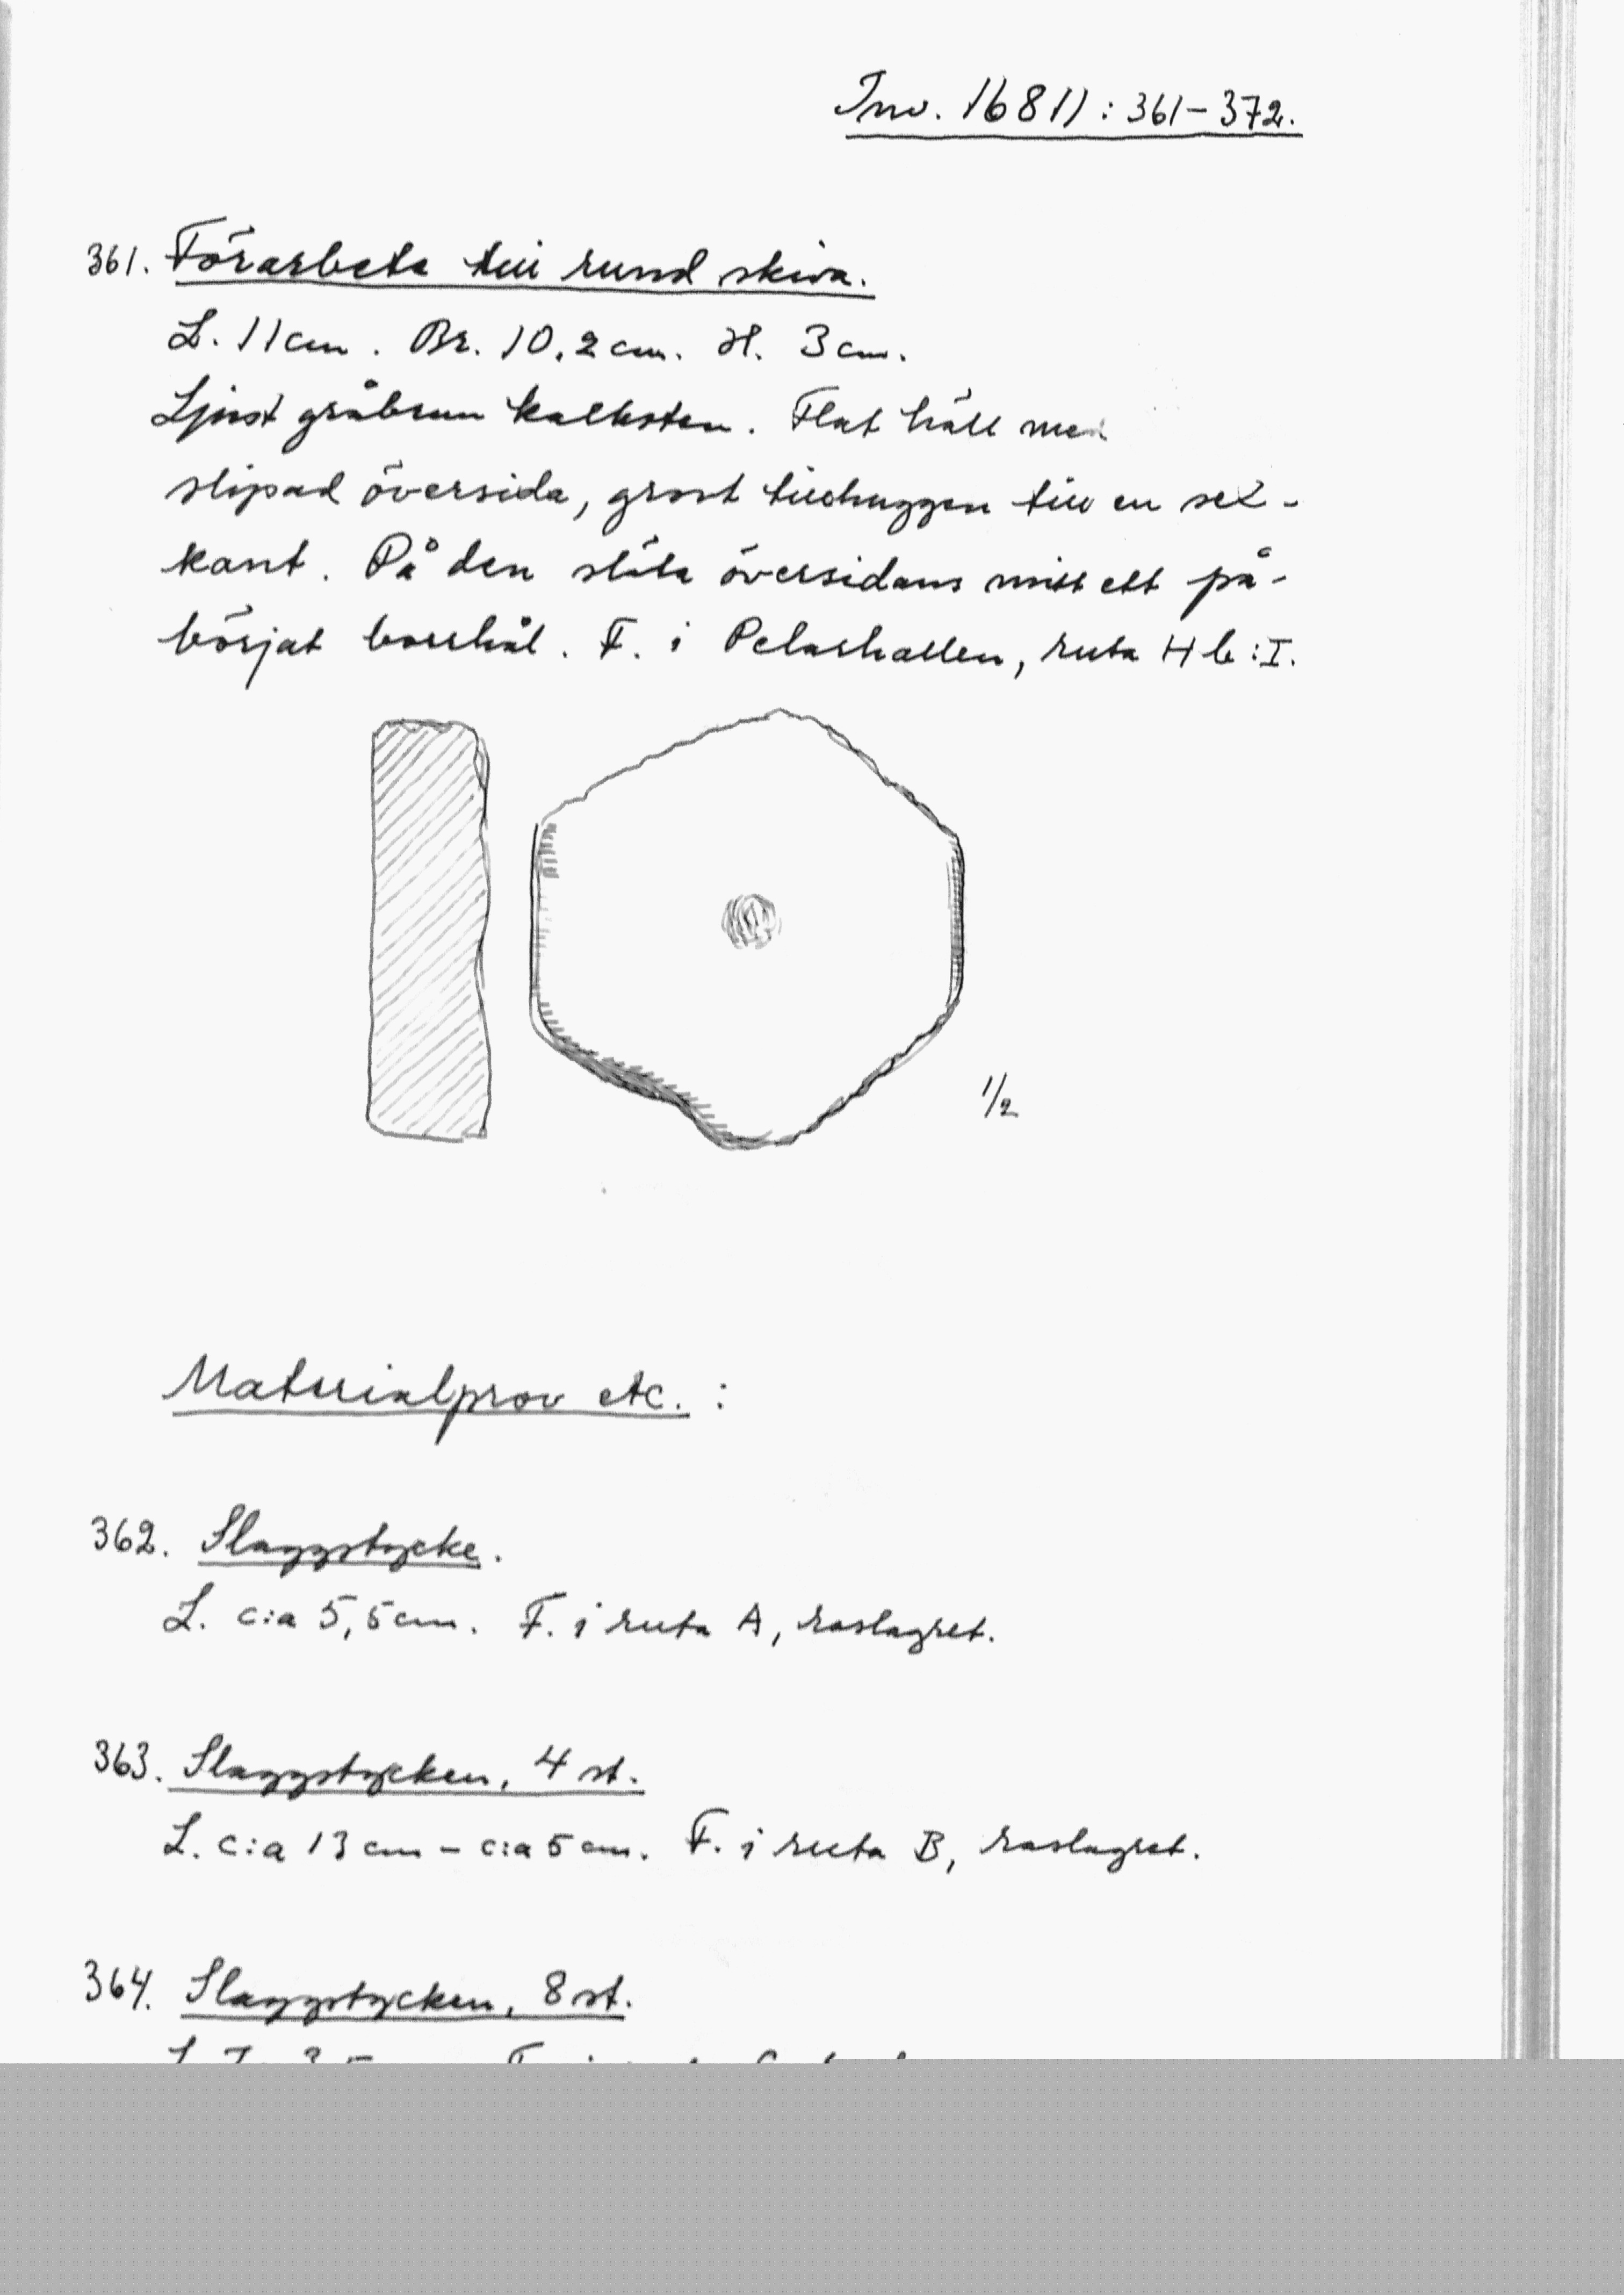 Inv. 16811 : 361 – 372.
361. Förarbete till rund skiva.
L. 11 cm. Br. 10,2 cm. H. 3 cm.
Ljust gråbrun kalksten. Flat häll med
slipad översida, grovt tillhuggen till en sex-
kant. På den släta översidans mitt ett på-
börjat borrhål. F. i Pelarhallen, ruta H b : I.
1/2
Materialprov etc. :
362. Slaggstycke.
L. c:a 5,5 cm. F. i ruta A, raslagret.
363. Slaggstycken, 4 st.
L. c:a 13 cm – c:a 5 cm. F. i ruta B, raslagret.
364. Slaggstycken, 8 st.